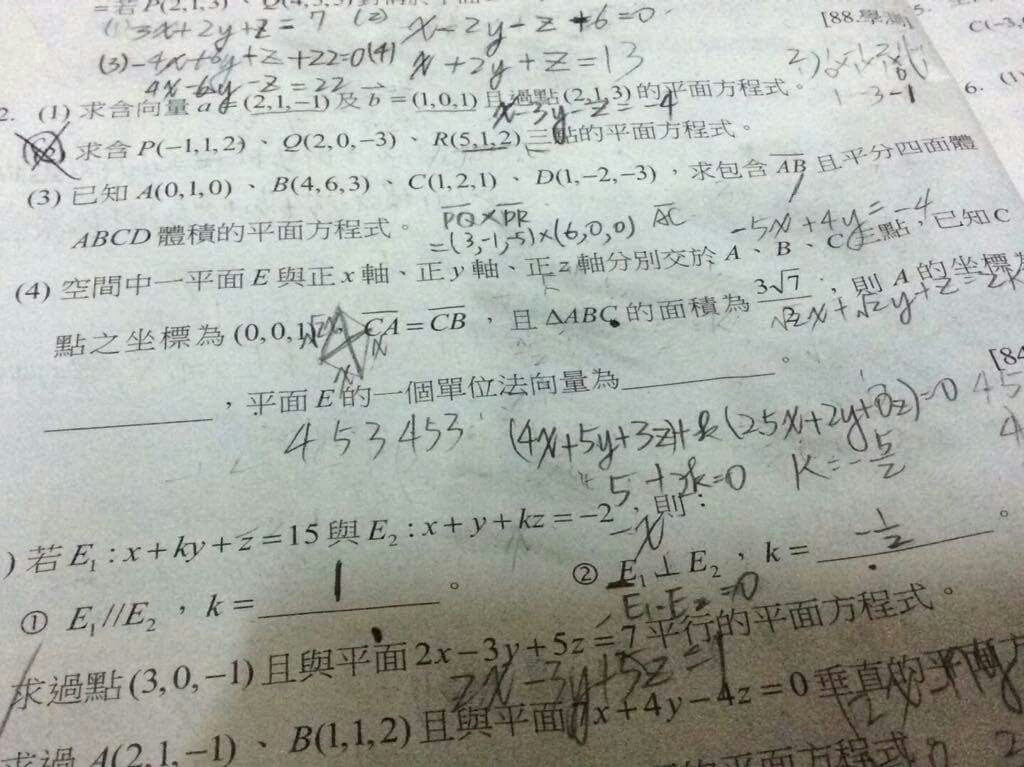 (1) 3x+2y+z=7 (2) x-2y-z+6=0 [88.學測]
(3) -4x+6y+z+22=0 (4) x+2y+z=13
4x-6y-z=22
2. (1) 求含向量 a=(2,1,-1) 及 b=(1,0,1) 且過點(2,1,3)的平面方程式。 6. (1)
x-3y-z=-4 1 -3 -1
求含 P(-1,1,2)、Q(2,0,-3)、R(5,1,2)三點的平面方程式。
(3) 已知 A(0,1,0)、B(4,6,3)、C(1,2,1)、D(1,-2,-3),求包含 AB 且平分四面體
ABCD 體積的平面方程式。 PQ×PR AC -5x+4y=-4
=(3,-1,-5)×(6,0,0)
(4) 空間中一平面 E 與正 x 軸、正 y 軸、正 z 軸分別交於 A、B、C 三點,已知 C
點之坐標為 (0,0,1), CA=CB,且 ΔABC 的面積為 3√7/2,則 A 的坐標為
,平面 E 的一個單位法向量為。 [84
453453 (4x+5y+3z)+k(25x+2y+z)=0 45
5+2k=0 K=-5/2
) 若 E₁:x+ky+z=15 與 E₂:x+y+kz=-2,則:
① E₁//E₂,k= 1 。 ② E₁⊥E₂,k= -1/2 。
E₁·E₂=0
求過點(3,0,-1)且與平面 2x-3y+5z=7 平行的平面方程式。
2x-3y+5z=1
求過 A(2,1,-1)、B(1,1,2) 且與平面 7x+4y-4z=0 垂直的平面方
的平面方程式。